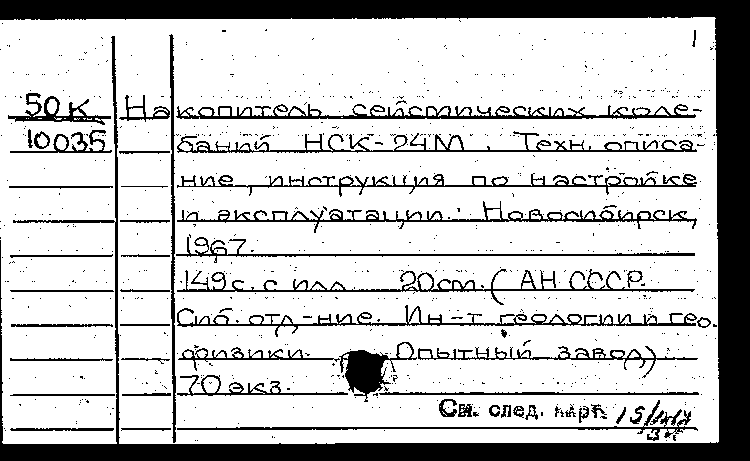 1
50К Накопитель сейсмических коле-
10035 баний НСК-24М. Техн. описа-
ние, инструкция по настройке
и эксплуатации. Новосибирск,
1967.
149 с. с илл 20 см. ( АН СССР.
Сиб. отд-ние. Ин-т геологии и гео.
физики. Опытный завод)
70 экз.
См. след. карт.